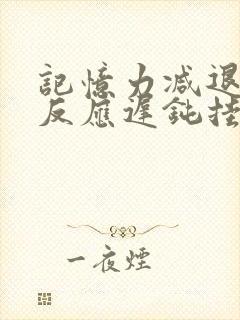 記憶力減退
反應遲鈍挂
一夜煙